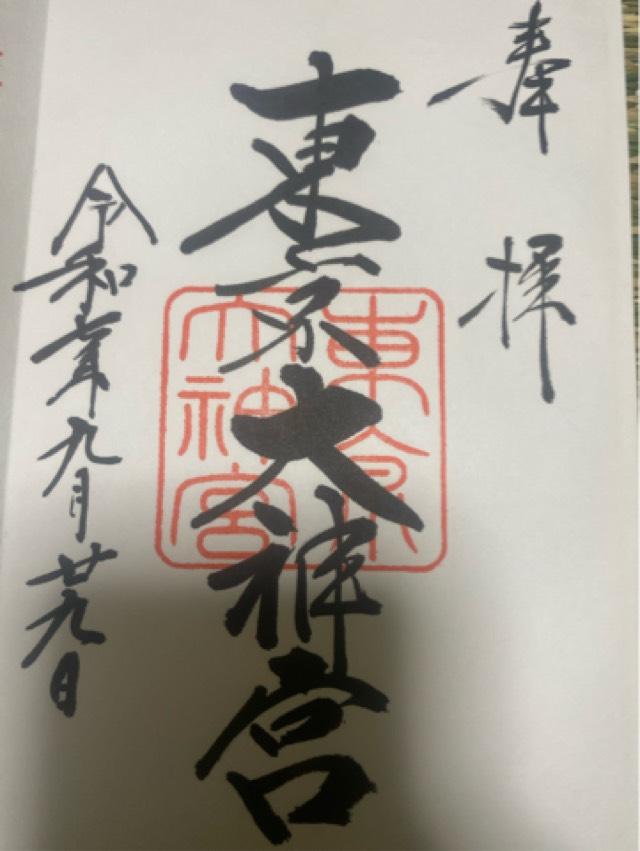 奉拝
東京大神宮
東京
大神宮
令和年九月廿九日